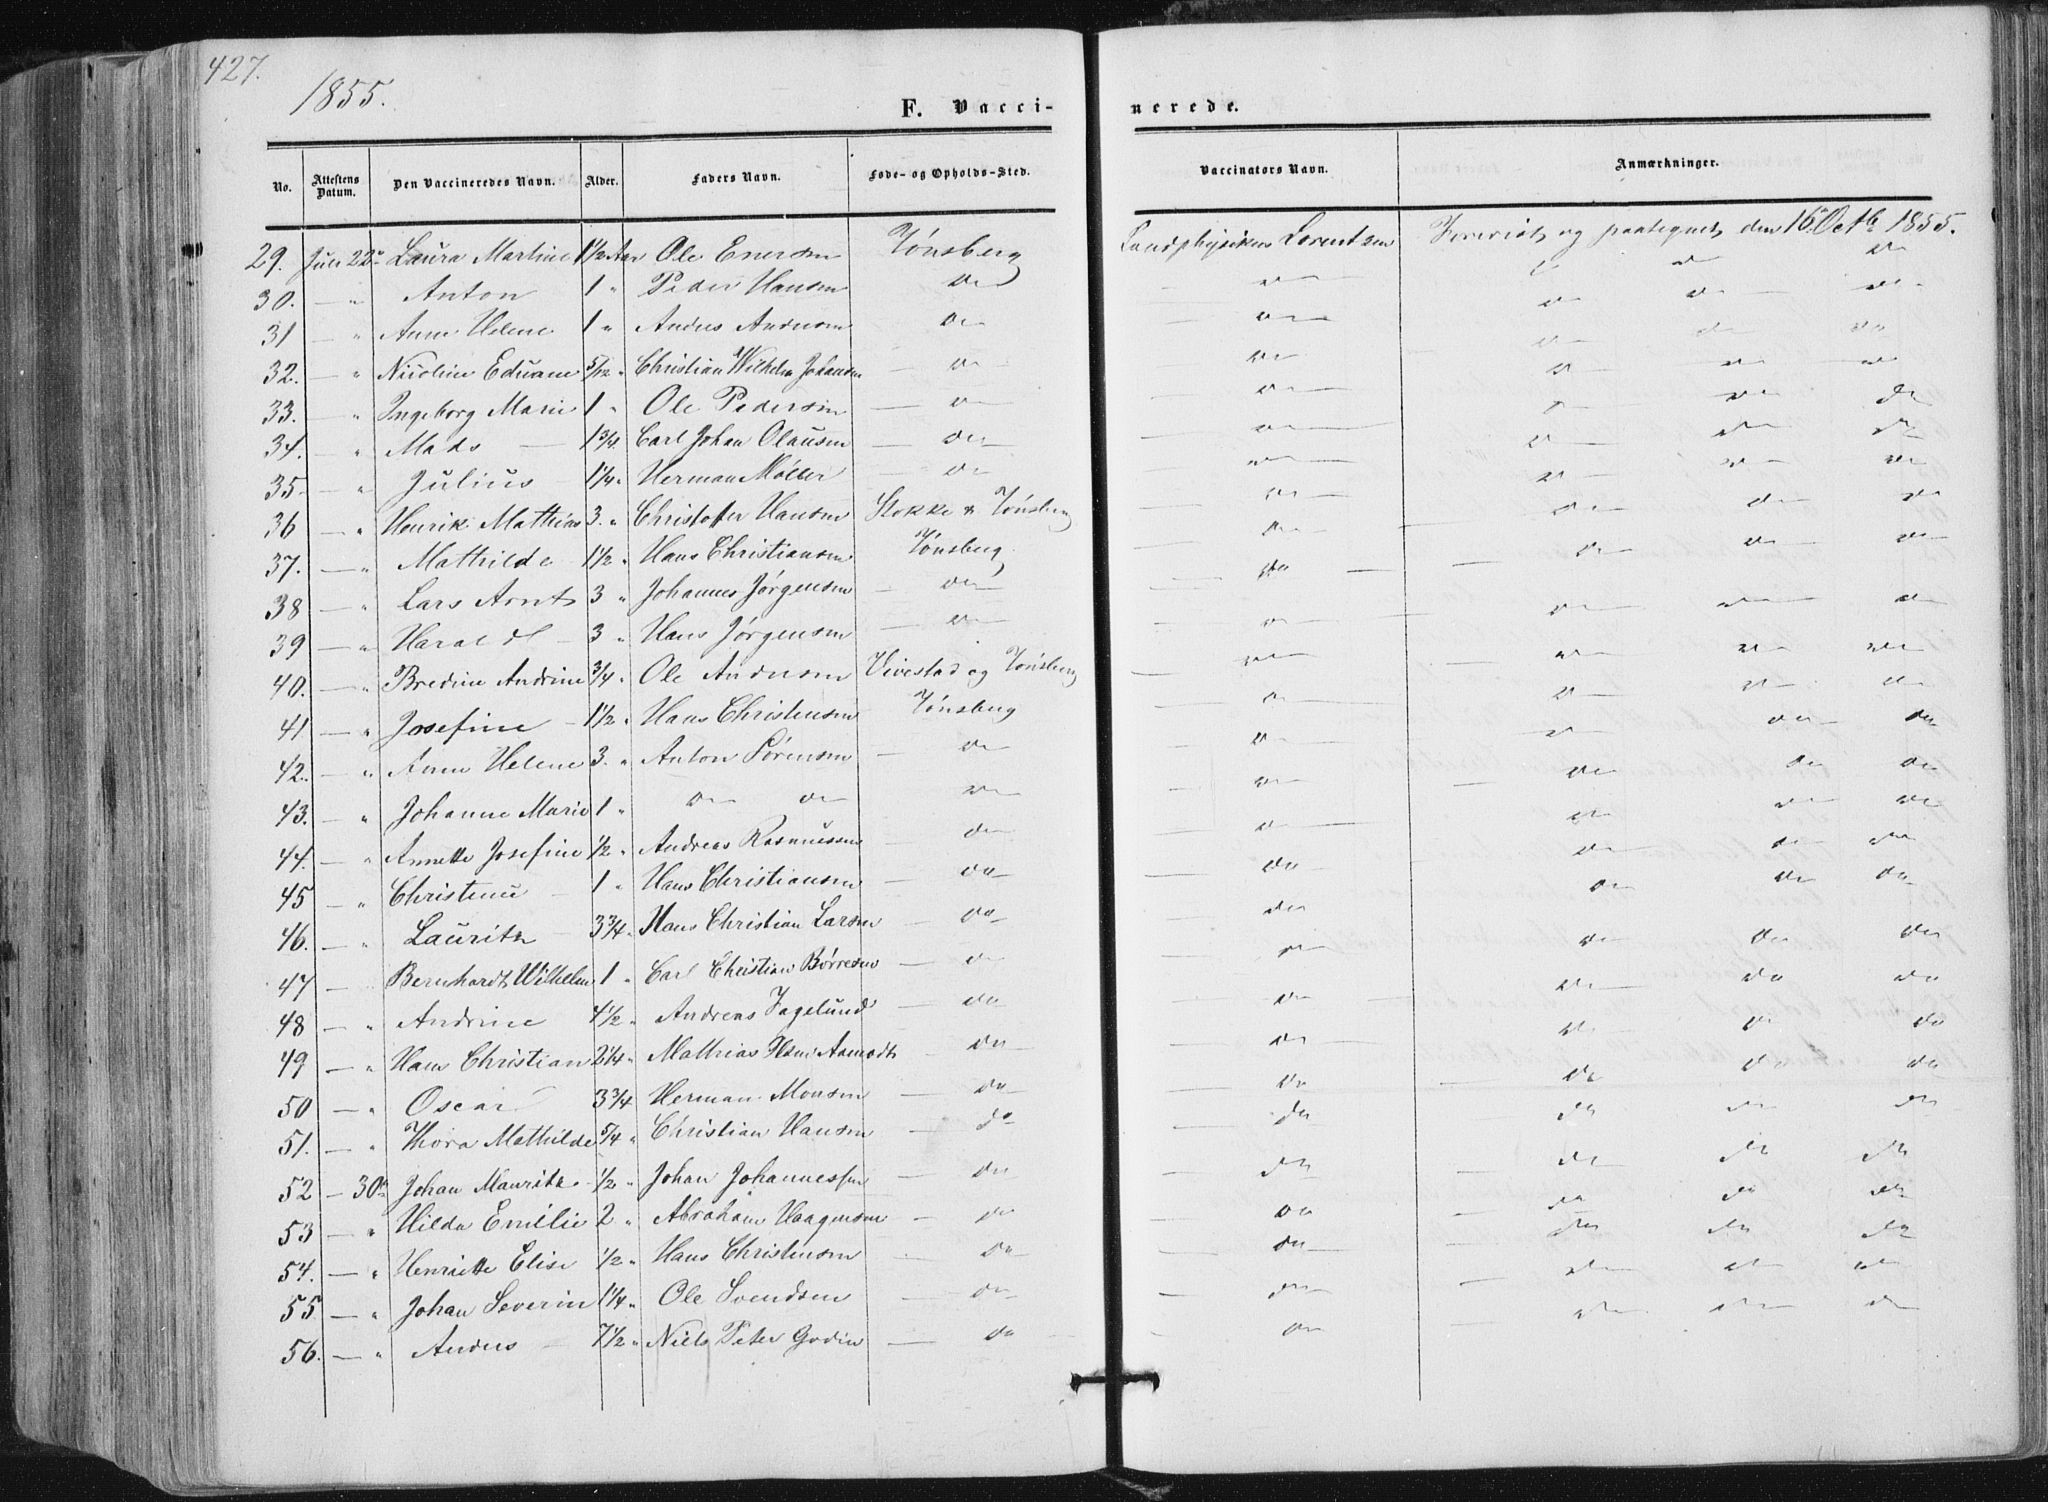 427.
1855.
F. Vacci- nerede.
No. Attestens Datum. Den Vaccineredes Navn. Alder. Faders Navn. Føde- og Opholds-Sted. Vaccinators Navn. Anmærkninger.
29. Juli 22de Laura Martine 1½ Aar Ole Enersen Tønsberg Landphysikus Lorentzen og paategnet den 16de Octb 1855.
30. — " Anton 1 " Peder Hansen do do do do
31 — " Anne Helene 1 " Anders Andersen do — do do do do
32. — " Nicoline Eduane 5/12 " Christian Wilhelm Johansen — do — do do do do
33. — " Ingeborg Marie 1 " Ole Pedersen — do — do do do do
34. — " Mads — 1¾ Carl Johan Olausen — do — do do do
35. — " Julius — 1¼ " Herman Møller — do — do do do do
36 — " Henrik Mathias 3. " Christoffer Hansen Stokke & Tønsberg — do do do do
37. — " Mathilde 1½ " Hans Christiansen Tønsberg — do — do do do
38 — " Lars Arnt 3 " Johannes Jørgensen — do — do — do do do
39 — " Harald — 3 " Hans Jørgensen — do — do — do do do
40. — " Bredine Andrine ¾ " Ole Andersen Vivestad og Tønsberg — do do do do
41 — " Josefine — 1½ " Hans Christensen Tønsberg — do do do do
42. — " Anne Helene 3. " Anton Sørensen — do — do do do do
43. — " Johanne Marie 1 " do do do — do — do do do
44. — " Annette Josefine ½ " Andreas Rasmussen do — do do do do
45 — " Christine — 1 " Hans Christiansen — do — do do do do
46. — " Lauritz — 3¾ " Hans Christian Larsen — do — do do do do
47 — Bernhardt Wilhelm 1 " Carl Christian Børresen — do — do do do do
48 — " Andrine 4½ " Andreas Fagelund — do — do do do do
49 — " Hans Christian 2¼ " Mathias Aamodt — do — do do do do
50 — " Oscar 3¾ Herman Monsen — do — do — do do do
51. — " Thora Mathilde 5/4 " Christian Hansen — do — do do do do
52 — 30te Johan Mauritz ½ " Johan Johannessen — do — do — do do do
53 — " Hilda Emilie 2 " Abraham Haagensen — do — do — do do do
54. — " Henriette Elise ½ " Hans Christensen — do — do — do do do
55. — " Johan Severin 1¼ " Ole Svendsen — do — do — do do do
56. — " Anders — 7½ " Niels Peter — do — do — do do do